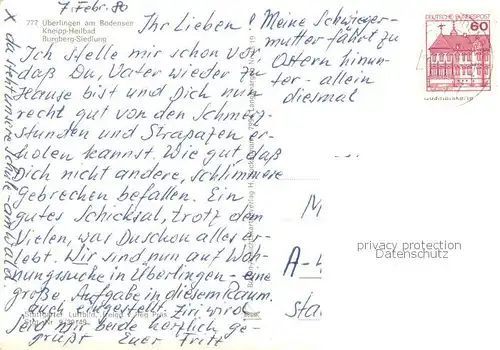 7. Febr. 80
777 Überlingen am Bodensee
Kneipp-Heilbad
Burgberg-Siedlung
Ihr Lieben!
Ich stelle mir schon vor
daß Du, Vater wieder zu
Hause bist und Dich nun
recht gut von den Schmerz-
stunden und Strapazen er-
holen kannst. Wie gut, daß
Dich nicht andere, schlimmere
Gebrechen befallen. Ein
gutes Schicksal, trotz dem
Vielen, was Du schon alles er-
lebt. Wir sind nun auf Woh-
nungssuche in Überlingen - eine
große Aufgabe in diesem Raum.
auch eingestellt. Ziri wird
Seid mir beide herzlich ge-
grüßt Euer Fritz
Meine Schwieger-
mutter fährt zu
Ostern hinun-
ter - allein
diesmal
x da steht unsere Schule - am Wald!
DEUTSCHE BUNDESPOST
60
M
A-
sta
privacy protection
Datenschutz